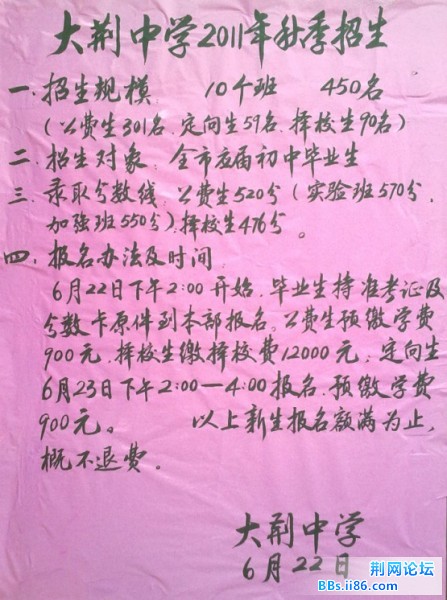 大荆中学2011年秋季招生
一.招生规模 10个班 450名
(公费生301名.定向生59名.择校生90名)
二.招生对象.全市应届初中毕业生
三.录取分数线.公费生520分(实验班570分.
加强班550分).择校生476分。
四.报名办法及时间.
6月22日下午2:00开始.毕业生持准考证及
分数卡原件到本部报名.公费生预缴学费
900元.择校生缴择校费12000元;定向生
6月23日下午2:00—4:00报名.预缴学费
900元。 以上新生报名额满为止,
概不退费。
大荆中学
6月22日
荆网论坛
BBs.ii86.com